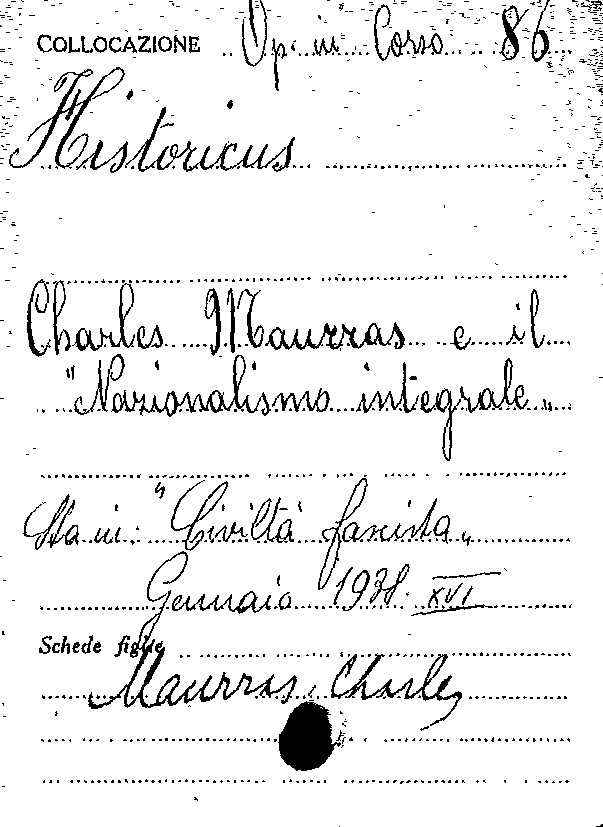 COLLOCAZIONE Op. in Corso 86
Historicus
Charles Maurras e il
"Nazionalismo integrale„
Sta in: "Civiltà fascista„
Gennaio 1938. XVI
Schede figlie
Maurras, Charles